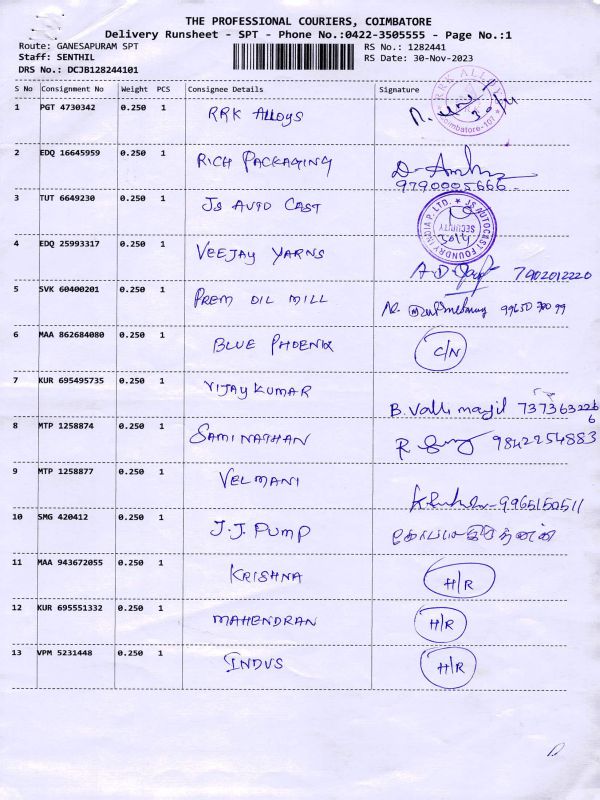 THE PROFESSIONAL COURIERS, COIMBATORE
Delivery Runsheet - SPT - Phone No.:0422-3505555 - Page No.:1
Route: GANESAPURAM SPT RS No.: 1282441
Staff: SENTHIL RS Date: 30-Nov-2023
DRS No.: DCJB128244101
S No Consignment No Weight PCS Consignee Details Signature
1 PGT 4730342 0.250 1 RRK Alloys
RRK ALLOY
Coimbatore-107
2 EDQ 16645959 0.250 1 RICH PACKAGING
9790005666
3 TUT 6649230 0.250 1 JS AUTO CAST
JS AUTOCAST FOUNDRY INDIA P. LTD.
SECURITY
4 EDQ 25993317 0.250 1 VEEJAY YARNS
7902012220
5 SVK 60400201 0.250 1 PREM OIL MILL
6 MAA 862684080 0.250 1 BLUE PHOENIX C/N
7 KUR 695495735 0.250 1 VIJAY KUMAR
B. Valli mayil 7373632266
8 MTP 1258874 0.250 1 SAMINATHAN
9842254883
9 MTP 1258877 0.250 1 VELMANI
9965150511
10 SMG 420412 0.250 1 J.J. PUMP
11 MAA 943672055 0.250 1 KRISHNA H/R
12 KUR 695551332 0.250 1 MAHENDRAN H/R
13 VPM 5231448 0.250 1 INDUS H/R